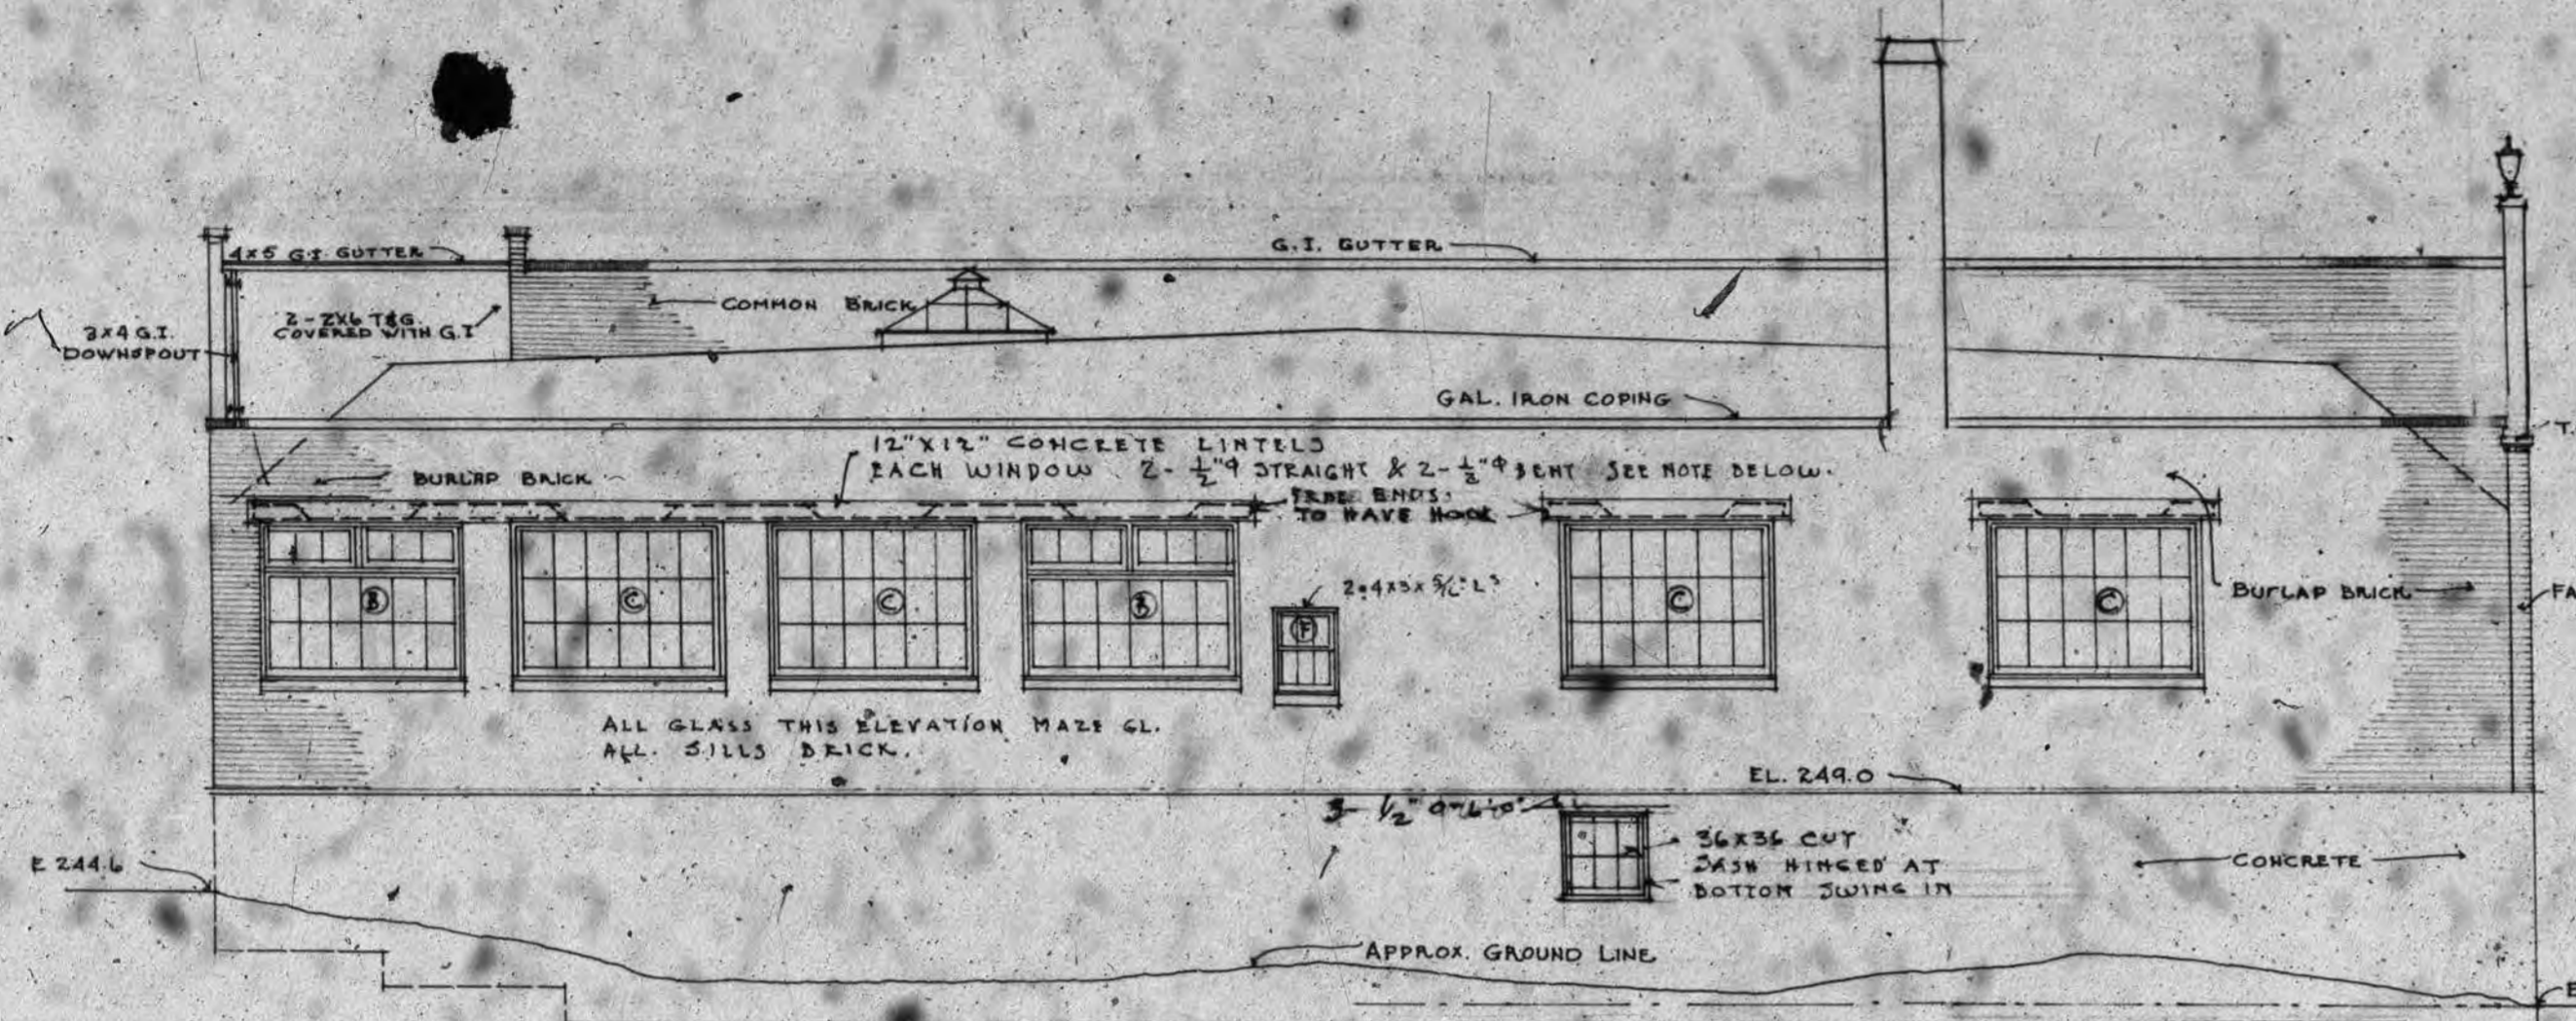 G.I. GUTTER
4X5 G.I. GUTTER
COMMON BRICK
2-2X6 T&G.
COVERED WITH G.I
3X4 G.I.
DOWNSPOUT
GAL. IRON COPING
12"X12" CONCRETE LINTELS
EACH WINDOW 2-½"φ STRAIGHT & 2-½"φ BENT SEE NOTE BELOW.
BURLAP BRICK
FREE ENDS
TO HAVE HOOK
T.
B
C
C
B
F
C
C
BURLAP BRICK
FA
ALL GLASS THIS ELEVATION MAZE GL.
ALL. SILLS BRICK.
EL. 249.0
3-½"
36X36 CUT
SASH HINGED AT
BOTTOM SWING IN
CONCRETE
E 244.6
APPROX. GROUND LINE
E